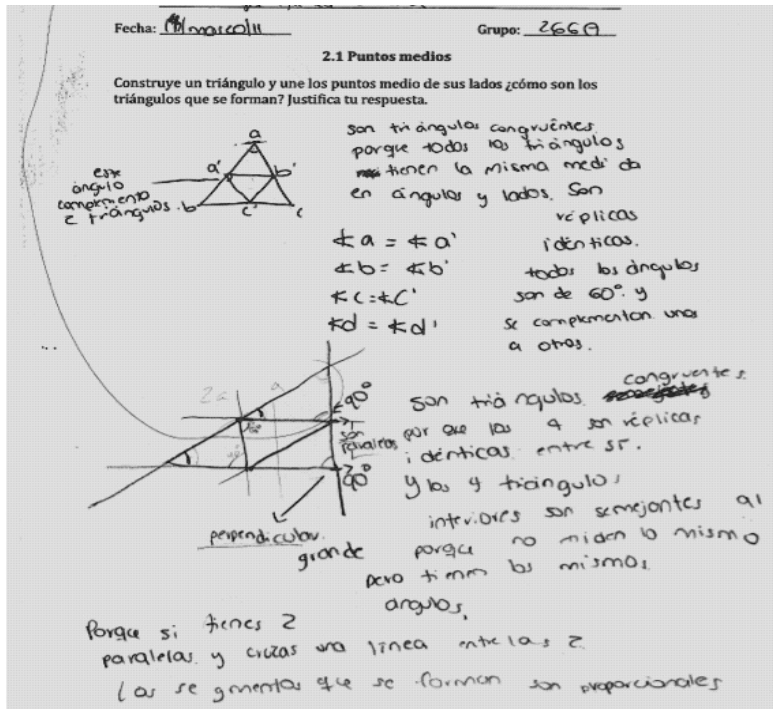 Fecha: 8/marzo/11 Grupo: 266A
2.1 Puntos medios
Construye un triángulo y une los puntos medio de sus lados ¿cómo son los
triángulos que se forman? Justifica tu respuesta.
son triángulos congruentes
porque todos los triángulos
tienen la misma medida
en ángulos y lados. Son
réplicas
idénticas.
todos los ángulos
son de 60°. y
se complementan unos
a otros.
a
a' b'
b c' c
este
ángulo
complementa
2 triángulos.
∡a = ∡a'
∡b = ∡b'
∡c = ∡c'
∡d = ∡d'
90°
son
paralelas
90°
perpendicular.
son triángulos congruentes.
por que los 4 son réplicas
idénticas entre sí.
y los 4 triángulos
interiores son semejantes al
grande porque no miden lo mismo
pero tienen los mismos
angulos.
Porque si tienes 2
paralelas y cruzas una línea entre las 2
las segmentos que se forman son proporcionales